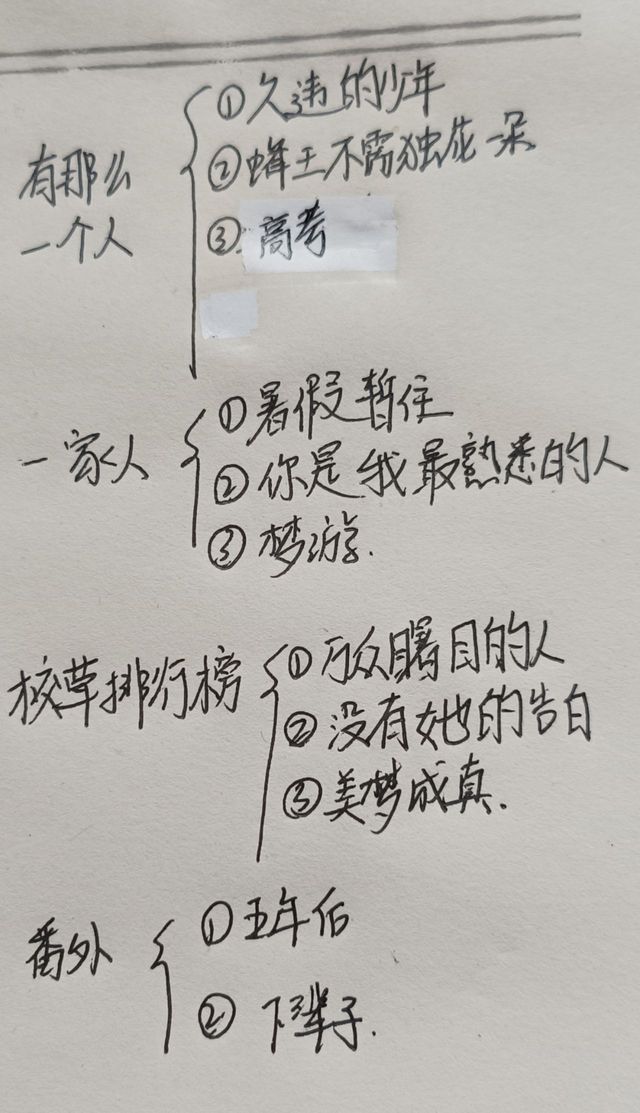 有那么
一个人
①久违的少年
②蜂王不需独花一朵
③高考
一家人
①暑假暂住
②你是我最熟悉的人
③梦游.
校草排行榜
①万众瞩目的人
②没有她的告白
③美梦成真.
番外
①五年后
②下辈子.